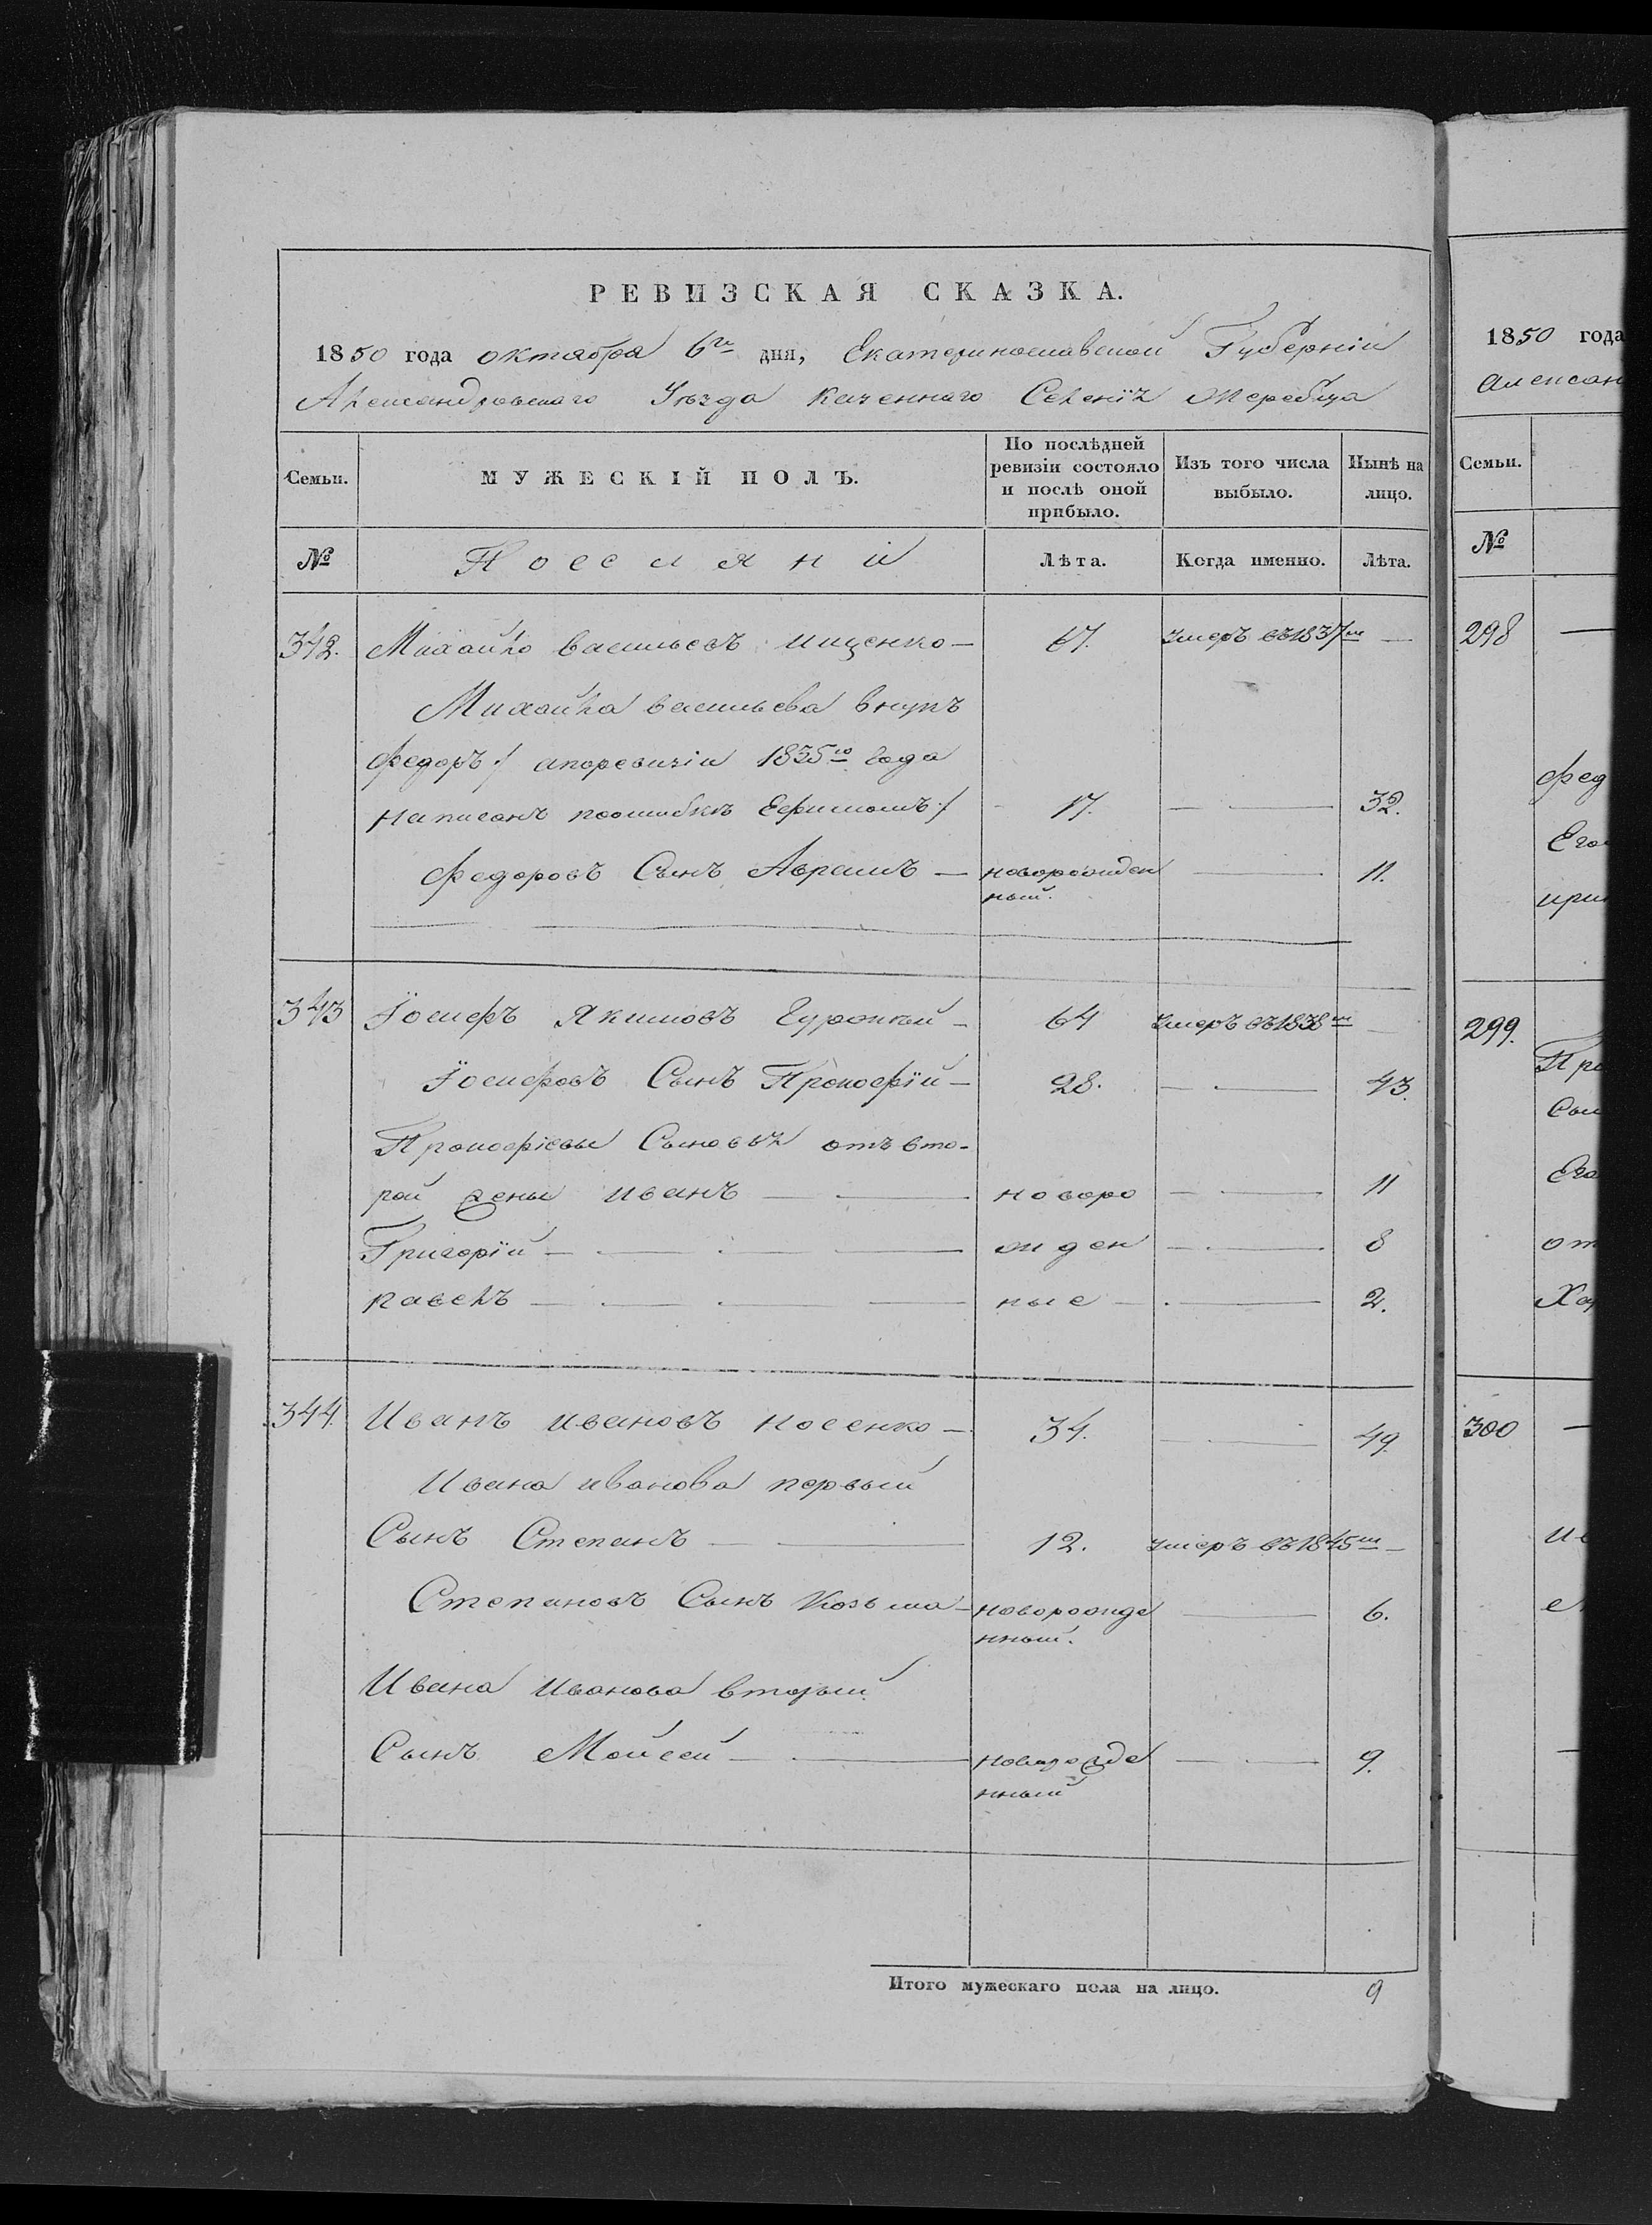 РЕВИЗСКАЯ СКАЗКА.
1850 года октября 6го дня, Екатеринославской Губерніи
Александровскаго Уезда Казеннаго Селенія Жеребца
Семьи.
МУЖЕСКІЙ ПОЛЪ.
По послѣдней ревизіи состояло и послѣ оной прибыло.
Изъ того числа выбыло.
Нынѣ на лицо.
№
Лѣта.
Когда именно.
Лѣта.
342. Михайло васильевъ ищенко — 67. умеръ въ 1837м —
Михайла васильева внукъ
федоръ /: апоревизіи 1835го года
написанъ поошибкѣ Ефимомъ :/ 17. — 32.
федоровъ Сынъ Аврамъ — новорожден — 11.
ный.
343 Іосифъ Якимовъ Гурский — 64 умеръ въ 1838м —
Іосифовъ Сынъ Прокофій — 28. — 43.
Прокофіевы Сыновья отъ вто-
рой жены иванъ — новоро — 11
Григорій — жден — 8
павелъ — ные — 2.
344. Иванъ ивановъ носенко — 34. — 49.
Ивана иванова первый
Сынъ Степанъ — 12. умеръ въ 1845м —
Степановъ Сынъ Козьма — новорожде — 6.
нный.
Ивана иванова вторый
Сынъ Мойсей — новорожде — 9.
нный
Итого мужескаго пола на лицо. 9
1850 года
Алексан
Семьи.
№
298 —
фед
Его
при
299.
Пр
Сын
Его
от
Ха
300 —